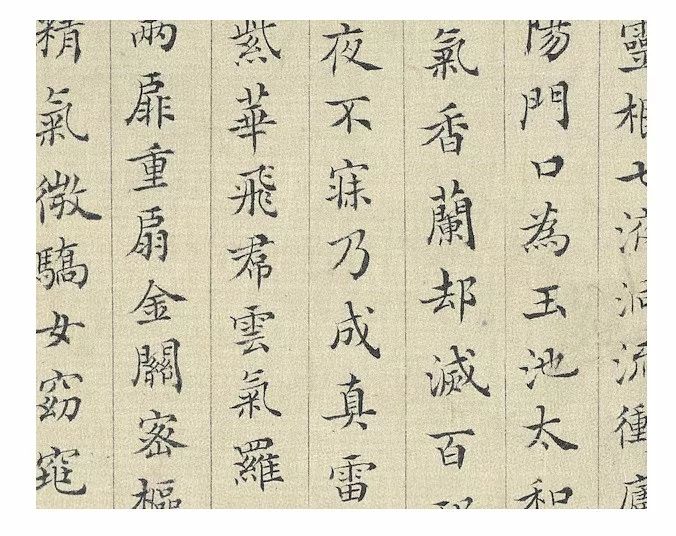 靈根七液洞流衝廬
陽門口為玉池太和
氣香蘭却滅百
夜不寐乃成真雷
紫華飛帬雲氣羅
兩扉重扇金關密樞
精氣微驕女窈窕